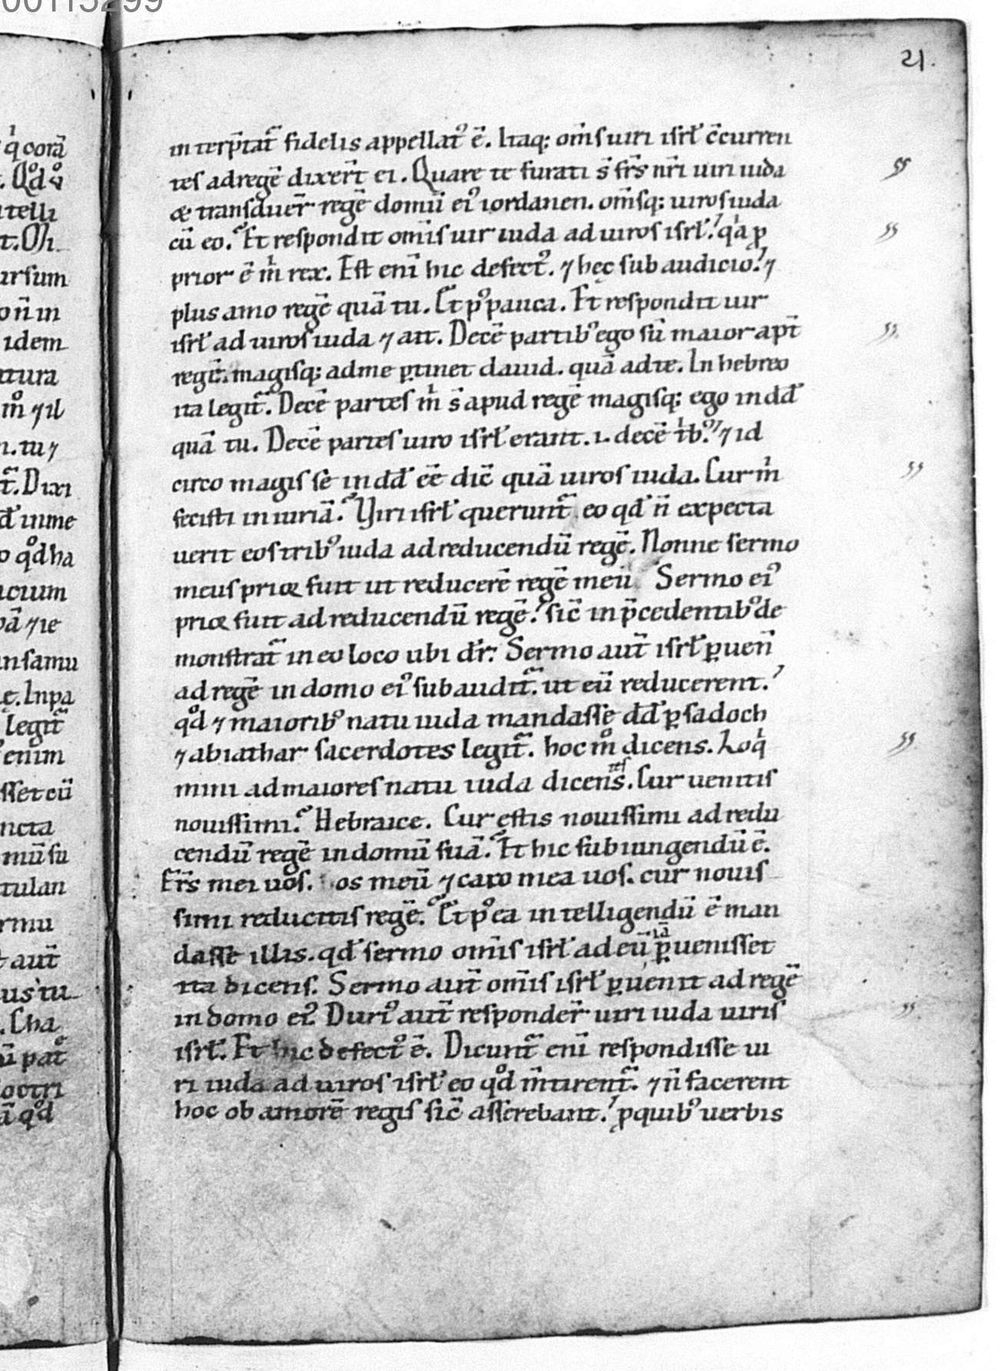 00115299
21.
q̓ corā
Qđ
itelli
ursum
idem
atura
m̊ ⁊ il
n. tu ⁊
t̄. Dixi
đ inme
o qđ ha
icium
bā ⁊ ie
insamu
ę. Inpa
legit̄
enim
asset eū
ncta
mū su
tulan
rmu
t aut̄
us tu
. Cha
pat᷒
qđ
interp̄tat̄ fidelis appellat᷒ ē. Itaq; om̄s uiri isrł c̄curren
tes ad regē dixer̄t ei. Quare te furati s̄ fr̄s nr̄i uiri iuda
& transduxer̄ regē domū ei᷒ iordanen. om̄sq; uiros iuda
cū eo. Et respondit om̄is uir iuda ad uiros isrł. q̓a ꝓ
prior ē m̓ rex. Est eni hic defect᷒. ⁊ hęc subaudicio. ⁊
plus amo regē quā tu. Et p᷒ pauca. Et respondit uir
isrł ad uiros iuda ⁊ ait. Decē partib᷒ ego sū maior apt̄
regē. magisq; ad me ꝑtinet dauid. quā ad te. In hebreo
ita legit̄. Decē partes m̓ s̄ apud regē magisq; ego in dđ
quā tu. Decē partes uiro isrł erant. ı. decē tb᷒. ⁊ id
circo magis se in dđ eē dic̄ quā uiros iuda. Cur m̓
fecisti iniuriā. Uiri isrł querunt̄ eo qđ n̄ expecta
uerit eos trib᷒ iuda ad reducendū regē. Nonne sermo
meus prior fuit ut reducerē regē meū Sermo ei᷒
prior fuit ad reducendū regē. sic̄ in p̄cedentib᷒ de
monstrat̄ in eo loco ubi dr̄: Sermo aut̄ isrł ꝑuen̄
ad regē in domo ei᷒ subaudit̄. ut eū reducerent.
qđ ⁊ maiorib᷒ natu iuda mandasse dđ ꝑ sadoch
⁊ abiathar sacerdotes legit̄. hoc m̊ dicens. Loq̓
mini ad maiores natu iuda dicens̄. Cur uenitis
nouissimi. Hebraice. Cur estis nouissimi ad redu
cendū regē in domū suā. Et hic subiungendū ē.
Fr̄s mei uos. os meū ⁊ caro mea uos. cur nouis
simi reducitis regē. Et p᷒ ea intelligendū ē man
dasse illis. qđ sermo om̄is isrł ad eū iā ꝑuenisset
ita dicens. Sermo aut̄ om̄is isrł ꝑuenit ad regē
in domo ei᷒. Duri᷒ aut̄ responder̄ uiri iuda uiris
isrł. Et hic defect᷒ ē. Dicunt̄ eni respondisse ui
ri iuda ad uiros isrł eo qđ m̄tirent̄. ⁊ n̄ facerent
hoc ob amorē regis sic̄ asserebant. ꝓ quib᷒ uerbis